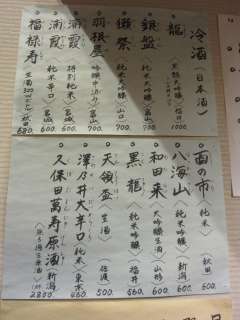 冷酒(日本酒)
龍 黒龍大吟醸 〈福井〉 1000
銀盤 純米大吟醸 〈富山〉 700
獺祭 純米大吟醸 〈山口〉 700
羽根屋 吟醸 〈富山〉 700
浦霞 特別純米 〈宮城〉 600
浦霞 純米辛口 〈宮城〉 600
福禄寿 生酒 300ml 〈秋田〉 680
雨の市 純米 秋田 600
八海山 〈純米吟醸〉 〈新潟〉 650
和田来 大吟醸生酒 〈山形〉 660
黒龍 〈純米吟醸〉 〈福井〉 560
天領盃 〈生酒〉 〈佐渡〉 500
澤乃井大辛口 純米 東京
久保田萬寿原酒 新潟 2800